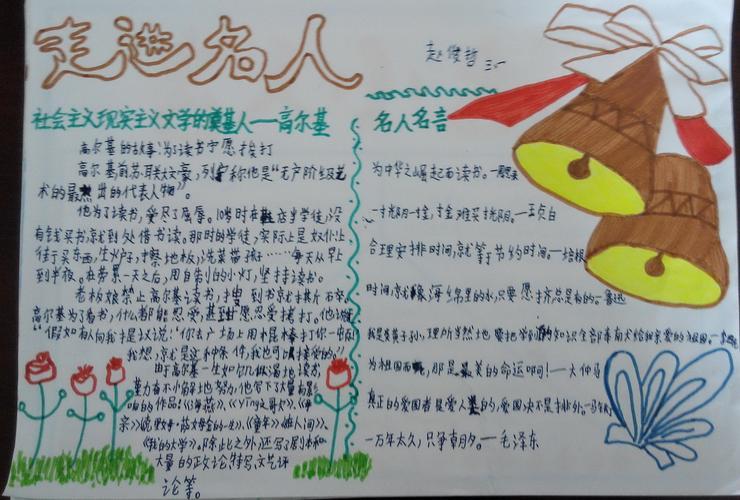 走进名人
赵俊哲 三、一
社会主义现实主义文学的奠基人——高尔基
高尔基的故事：为了读书宁愿挨打
高尔基前苏联大文豪，列宁称他是“无产阶级艺
术的最杰出的代表人物”。
他为了读书，受尽了屈辱。10岁时在鞋店当学徒，没
有钱买书，就到处借书读。那时的学徒，实际上是奴仆，上
街买东西，生炉子，擦地板，洗菜带孩子……每天从早上
到半夜。在劳累一天之后，用自制的小灯，坚持读书。
老板娘禁止高尔基读书，搜到书就撕碎。
高尔基为了看书，什么都能忍受，甚至甘愿忍受拷打。他说过
“假如有人向我提议说：‘你去广场上用棍棒打你一顿
我想，就是这种条件，我也可以接受的。”
由于高尔基一生如饥似渴地读书，
努力地写下了大量有影
响的作品！《海燕》、《Ying之歌》、《
《童年》《
《我的大学》。除此之外，还写了剧本和
大量的政论，特写，文艺评
论等。
名人名言
为中华之崛起而读书。—周恩来
一寸光阴一寸金，寸金难买寸光阴。—王贞白
合理安排时间，就等于节约时间。—培根
时间，就像海绵里的水，只要愿挤总是有的。—鲁迅
我是炎黄子孙，理所当然地要把学到的知识全部奉献给我亲爱的祖国。—
为祖国而死，那是最美的命运啊！—大仲马
真正的爱国者是爱人类的，爱国决不是排外。—
一万年太久，只争朝夕。—毛泽东